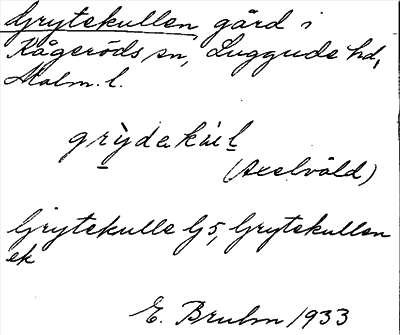 Grytekullen gård i
Kågeröds sn, Luggude hd,
Malm. l.
grỳdekúl
(Axelvåld)
Grytekulle G5, Grytekullen
ek
E. Bruhn 1933